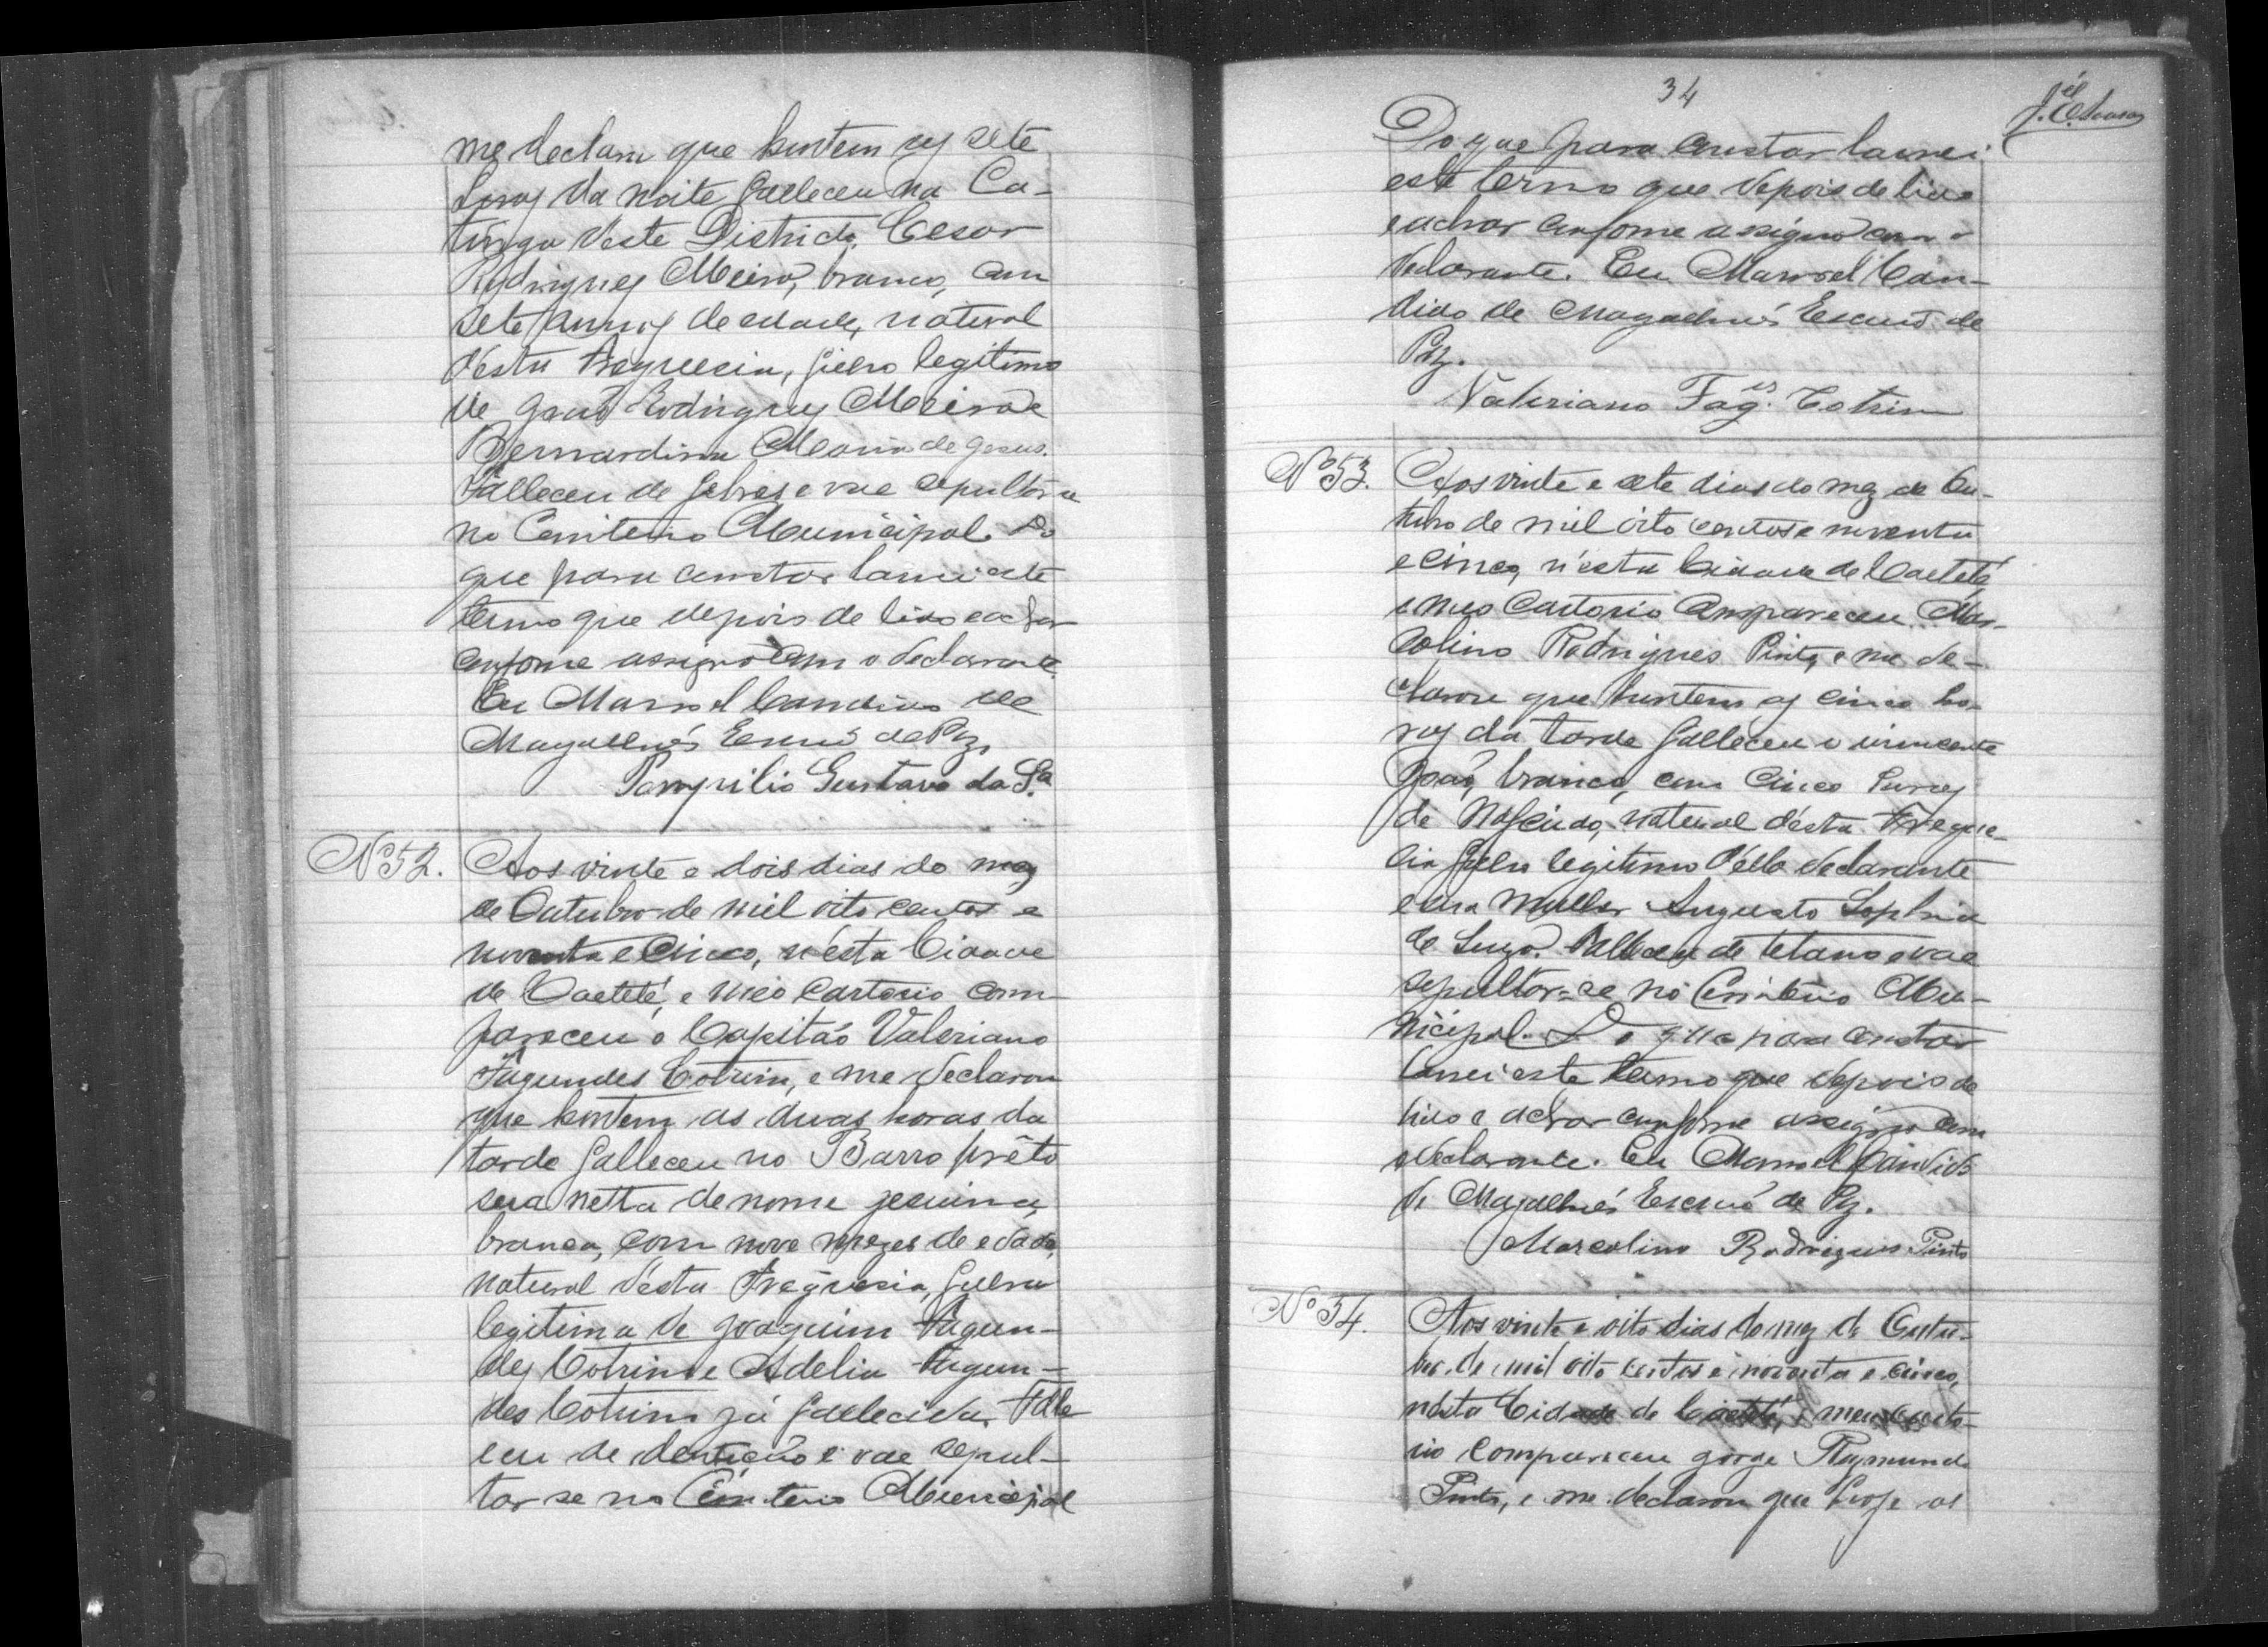 me declarou que hontem as sete
horas da noite falleceu na Ca-
tinga deste Districto, Cesar
Rodrigues Meira, branco, com
sete annos de edade, natural
desta Freguesia, filho legitimo
de João Rodrigues Meira e
Bernardina Maria de Jesus.
Falleceu de febres e vae sepultar-se
no Cemiterio Municipal. Do
que para constar lavrei este
termo que depois de lido e achar
conforme assigno com o declarante.
Eu Manoel Candido de
Magalhães Escrivão de Paz.
Pompilio Gustavo da Sª
Nº 52. Aos vinte e dois dias do mez
de Outubro de mil oito centos e
noventa e cinco, n'esta Cidade
de Caeteté, e meo Cartorio com-
pareceu o Capitão Valeriano
Fagundes Cotrim, e me declarou
que hontem as duas horas da
tarde falleceu no Barro prêto
sua netta de nome Jesuina,
branca, com nove mezes de edade,
natural desta Freguesia, filha
legitima de Joaquim Fagun-
des Cotrim e Adelia Fagun-
des Cotrim já fallecida. Falle
ceu de dentição e vae sepul-
tar se no Cemiterio Municipal
34
Do que para constar lavrei
este termo que depois de lido
e achar conforme assigno com o
declarante. Eu Manoel Can-
dido de Magalhães Escrivão de
Paz.
Valeriano Fag.es Cotrim
Nº 53. Aos vinte e sete dias do mez de Ou-
tubro de mil oito centos e noventa
e cinco, n'esta Cidade de Caeteté,
e meo Cartorio compareceu Mar-
colino Rodrigues Pinto, e me de-
clarou que hontem as cinco ho-
ras da tarde falleceu o innocente
João, branco, com cinco horas
de nascido, natural desta Fregue-
sia filho legitimo delle declarante
e sua mulher Augusta Sophia
de Falleceu de tetano e vae
sepultar-se no Cemiterio Mu-
nicipal. Do que para constar
lavrei este termo que depois de
lido e achar conforme assigno com
o declarante. Eu Manoel Candido
de Magalhães Escrivão de Paz.
Marcolino Rodrigues Pinto
Nº 54. Aos vinte e oito dias do mez de Outu-
bro de mil oito centos e noventa e cinco,
nesta Cidade de Caeteté, e meu Carto-
rio compareceu Jorge Raymundo
Pinto, e me declarou que hoje as